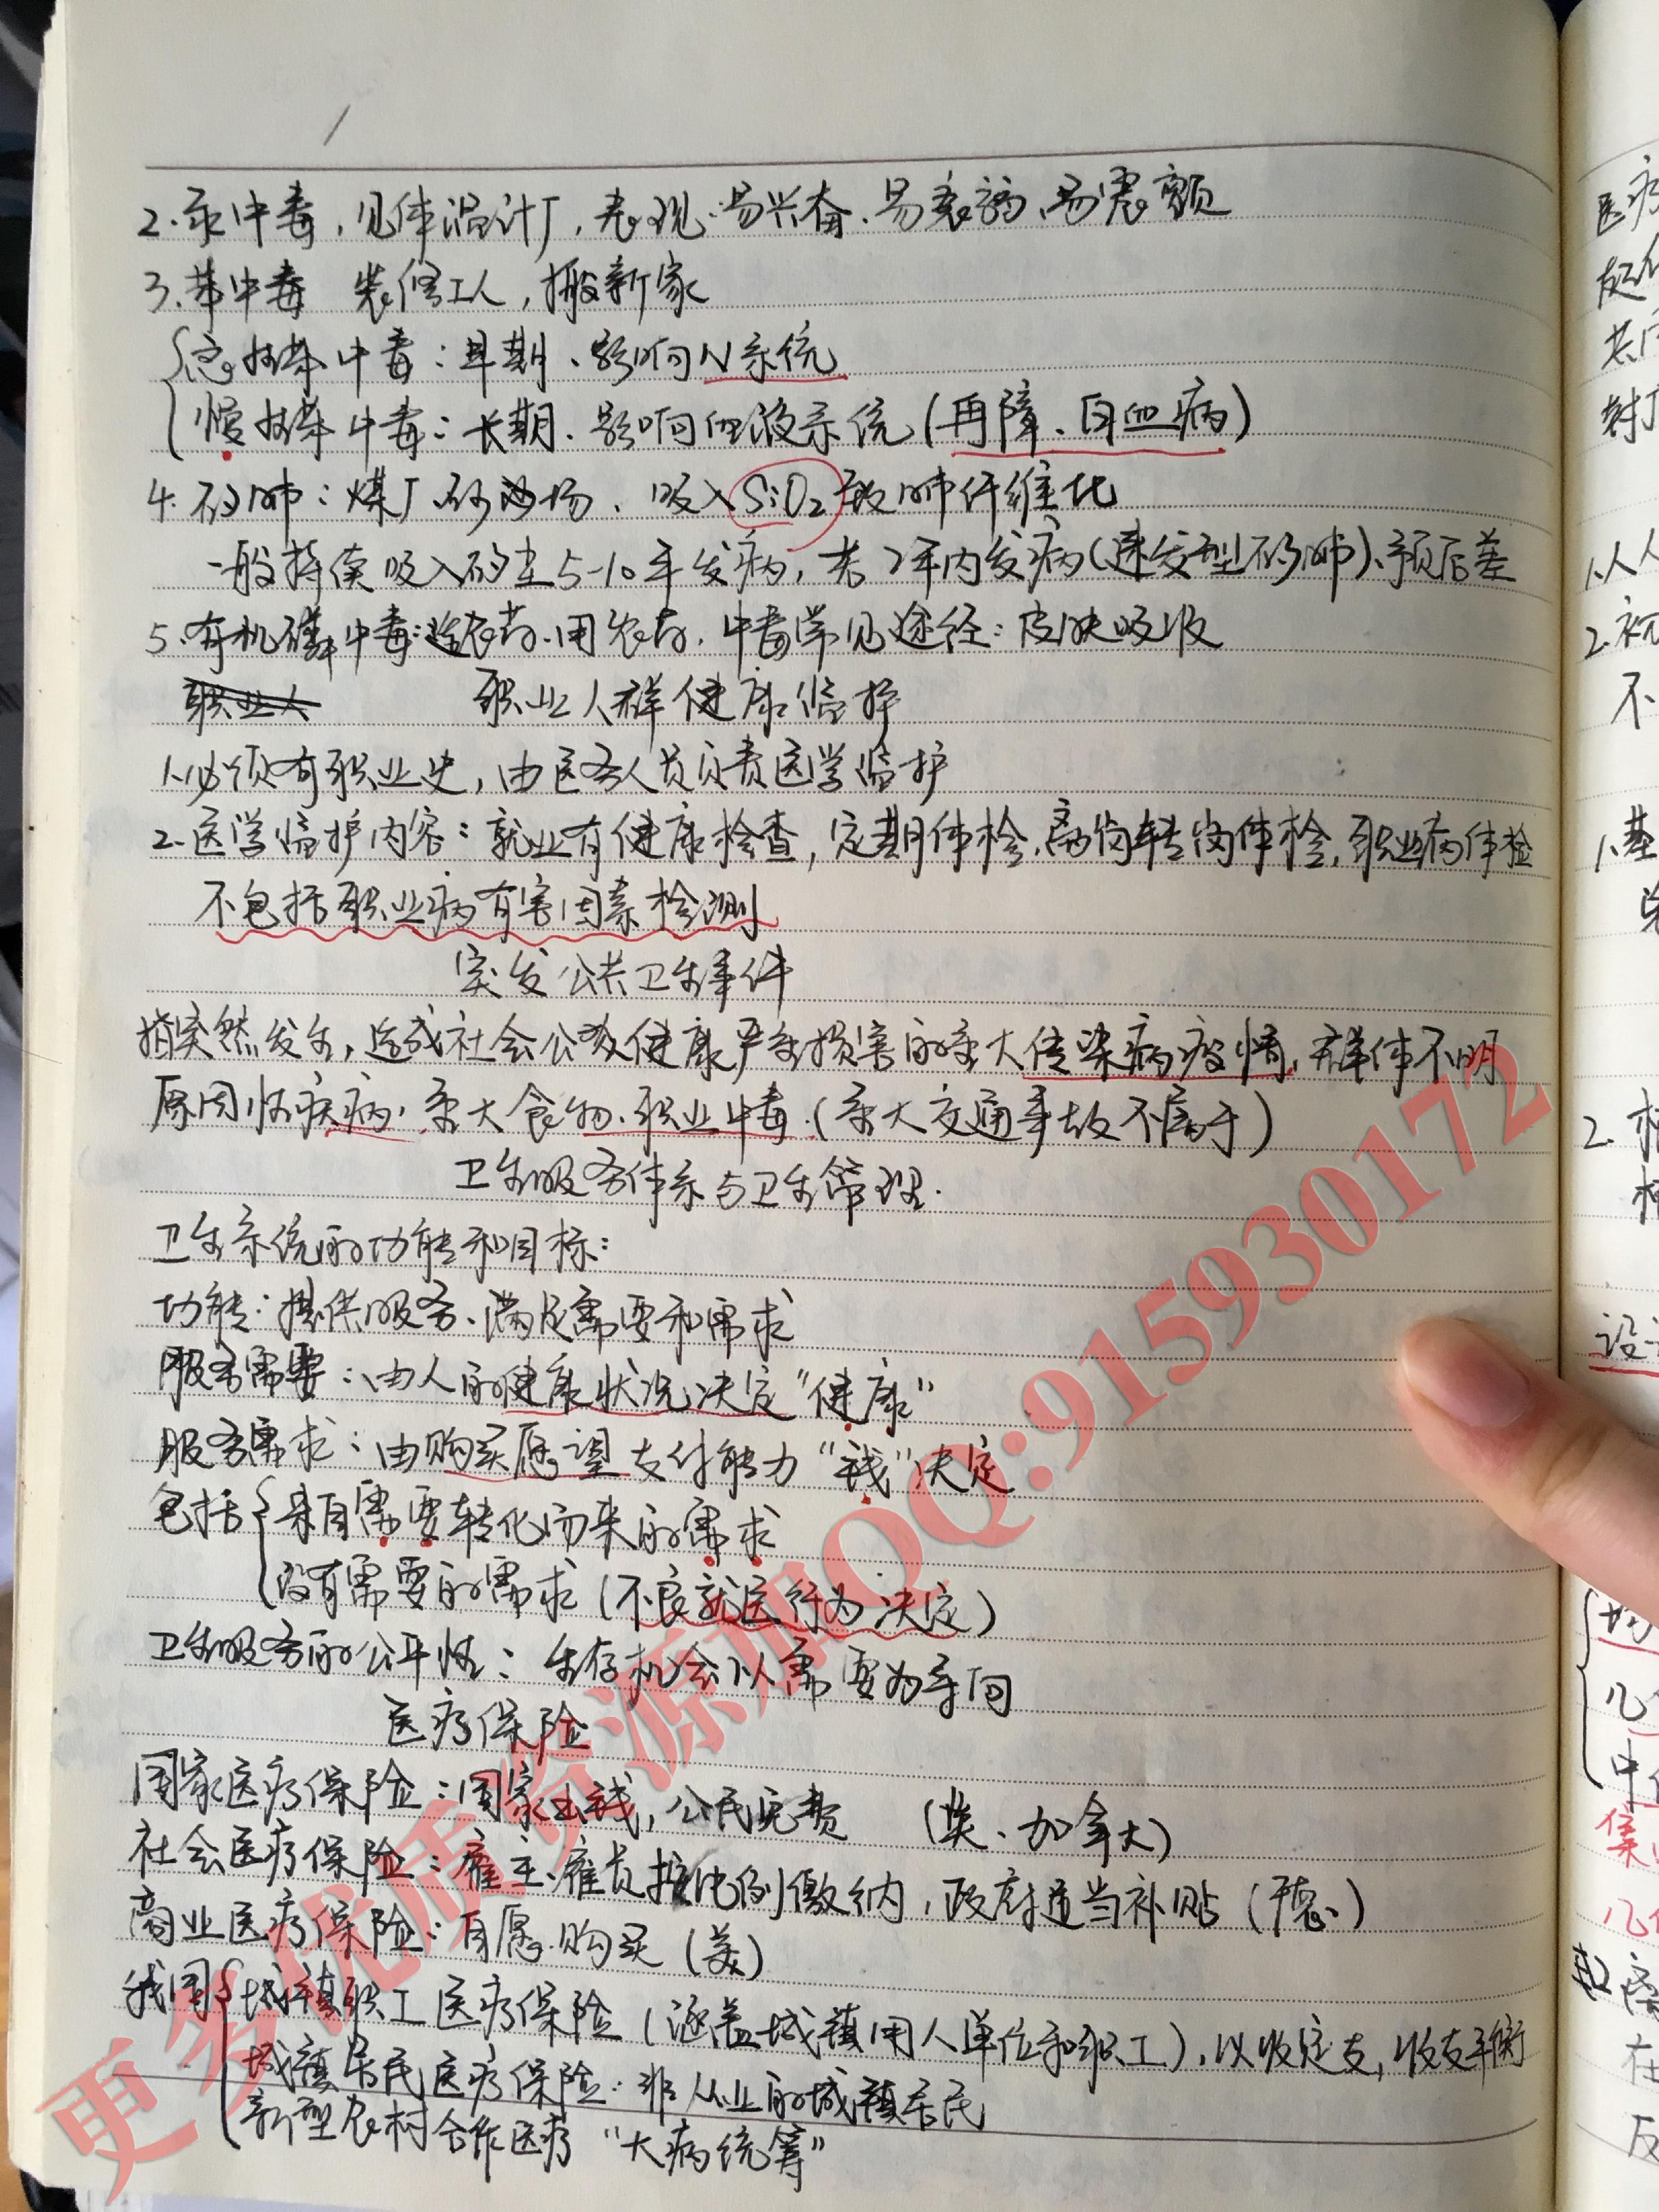 2.汞中毒,见体温计厂,表现:易兴奋、易衰弱、易震颤
3.苯中毒 装修工人,搬新家
急性苯中毒:早期、影响N系统
慢性苯中毒:长期、影响血液系统(再障、白血病)
4.矽肺:煤厂、砂场、吸入SiO2致肺纤维化
一般持续吸入矽尘5-10年发病,若2年内发病(速发型矽肺)、预后差
5.有机磷中毒:造农药、用农药,中毒常见途径:皮肤吸收
职业人 职业人群健康监护
1.必须有职业史,由医务人员负责医学监护
2.医学监护内容:就业有健康检查,定期体检,离岗转岗体检,职业病体检
不包括职业病有害因素检测
突发公共卫生事件
指突然发生,造成社会公众健康严重损害的重大传染病疫情,群体不明
原因性疾病,重大食物、职业中毒.(重大交通事故不属于)
卫生服务体系与卫生管理.
卫生系统的功能和目标:
功能:提供服务、满足需要和需求
服务需要:由人的健康状况决定“健康”
服务需求:由购买愿望支付能力“钱”决定
包括 来自需要转化而来的需求
没有需要的需求(不良就医行为决定)
卫生服务的公平性:生存机会以需要为导向
医疗保险
国家医疗保险:国家出钱,公民免费 (英、加拿大)
社会医疗保险:雇主、雇员按比例缴纳,政府适当补贴(德)
商业医疗保险:自愿购买(美)
我国 城镇职工医疗保险(涵盖城镇用人单位和职工),以收定支,收支平衡
城镇居民医疗保险:非从业的城镇居民
新型农村合作医疗“大病统筹”
更多优质资源加QQ:915930172
医疗
1.人
2.初
不
1.基
2.
设
几
中
几
在
反